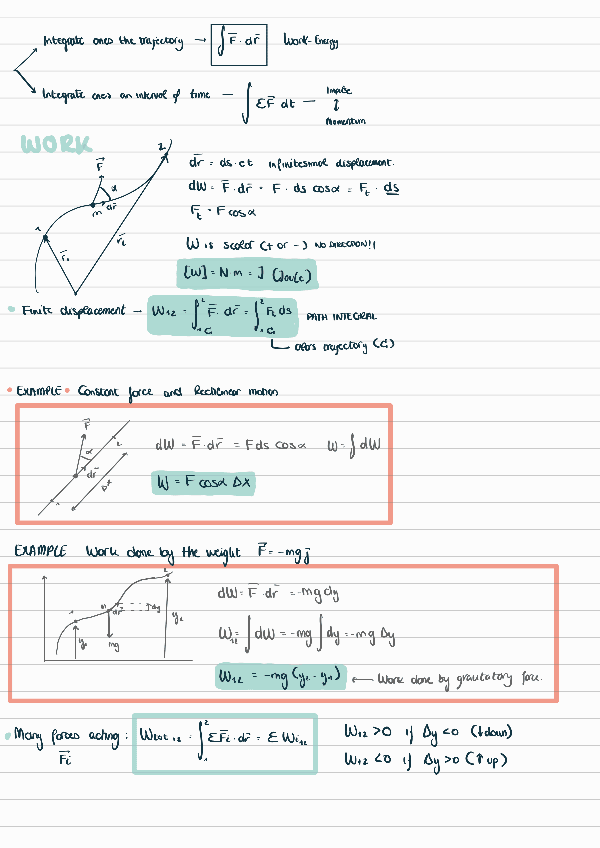 Integrate over the trajectory → ∫ F̄ · dr̄ Work-Energy
Integrate over an interval of time — ∫ ΣF̄ dt — Impulse ↕ Momentum
WORK
dr̄ = ds · et infinitesimal displacement.
dW = F̄ · dr̄ = F · ds cosα = Ft · ds
Ft = F cosα
W is scalar (+ or -) NO DIRECTION!!
[W] = N m = J (Joule)
F̄ α m dr̄ 1 2 r̄₁ r̄₂
• Finite displacement — W₁₂ = ∫₁² F̄ · dr̄ = ∫₁² Ft ds PATH INTEGRAL
C₁ C₁
trajectory (C₁)
• EXAMPLE • Constant force and Rectilinear motion
F̄ α dr̄ Δx 1 2
dW = F̄ · dr̄ = F ds cosα W = ∫ dW
W = F cosα Δx
EXAMPLE Work done by the weight F̄ = -mg j̄
1 2 m dr̄ dy y₁ y₂ mg
dW = F̄ · dr̄ = -mg dy
W₁₂ = ∫ dW = -mg ∫ dy = -mg Δy
W₁₂ = -mg (y₂ - y₁) ← Work done by gravitatory force.
• Many forces acting: Wtot₁₂ = ∫₁² ΣF̄i · dr̄ = Σ Wi₁₂ W₁₂ > 0 if Δy < 0 (↓ down)
F̄i W₁₂ < 0 if Δy > 0 (↑ up)